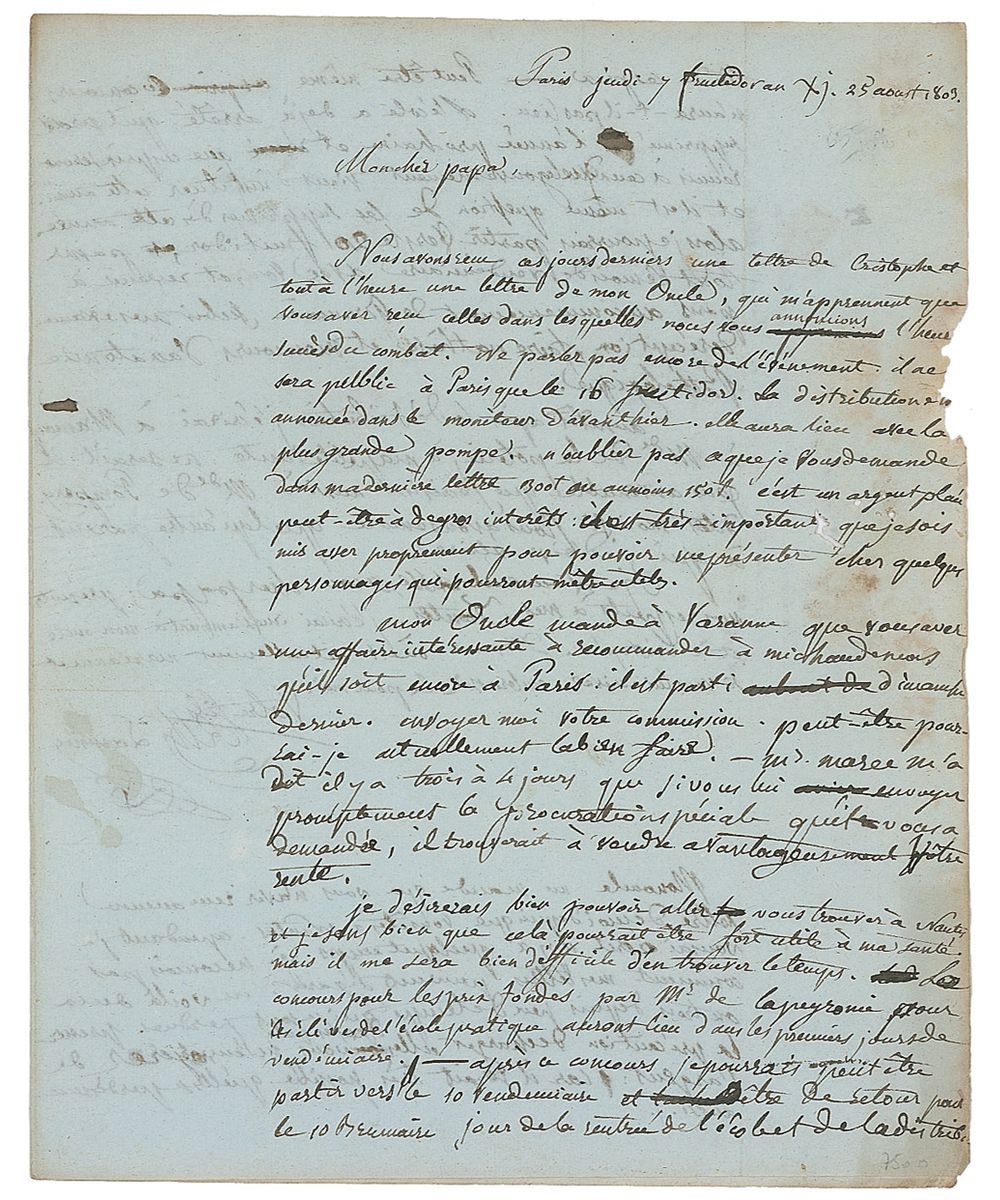 Paris jeudi 7 fructidor an XJ. 25 aoust 1803.
Mon cher papa,
Nous avons reçu ces jours derniers une lettre de Cristophe et
tout à l'heure une lettre de mon Oncle, qui m'apprennent que
vous avez reçu celles dans lesquelles nous vous annoncions l'heur
succès du combat. Ne parlez pas encore de l'événement. il ne
sera public à Paris que le 16 fructidor. La distribution en
annoncée dans le moniteur d'avant hier. elle aura lieu avec la
plus grande pompe. n'oubliez pas ce que je vous demande
dans ma dernière lettre 300# ou aumoins 150#. c'est un argent placé
peut-être à de gros interêts. il est très-important que je sois
mis avez proprement pour pouvoir me présenter chez quelques
personnages qui pourront m'être utiles.
mon Oncle mande à Varanne que vous avez
une affaire intéressante à recommander à michaud
qu'il soit encore à Paris. il est parti dimanche
dernier. envoyez moi votre commission. peut-être pour-
rai-je actuellement la bien faire. — mr. maree m'a
dit il y a trois à 4 jours que si vous lui envoyez
promptement la procuration spéciale qu'il vous a
demandée, il trouverait à vendre avantageusement vôtre
rente.
je désirerais bien pouvoir aller vous trouver à Nantes
et je sens bien que celà pourrait être fort utile à ma santé.
mais il me sera bien difficile d'en trouver le temps. Les
concours pour les prix fondés par Mr. de lapeyronie pour
les élèves de l'école pratique auront lieu dans les premiers jours de
vendémiaire. — après ce concours je pourrais peut être
partir vers le 10 vendemiaire et être de retour pour
le 10 Brumaire jour de la rentrée de l'école et de la distrib.
7500